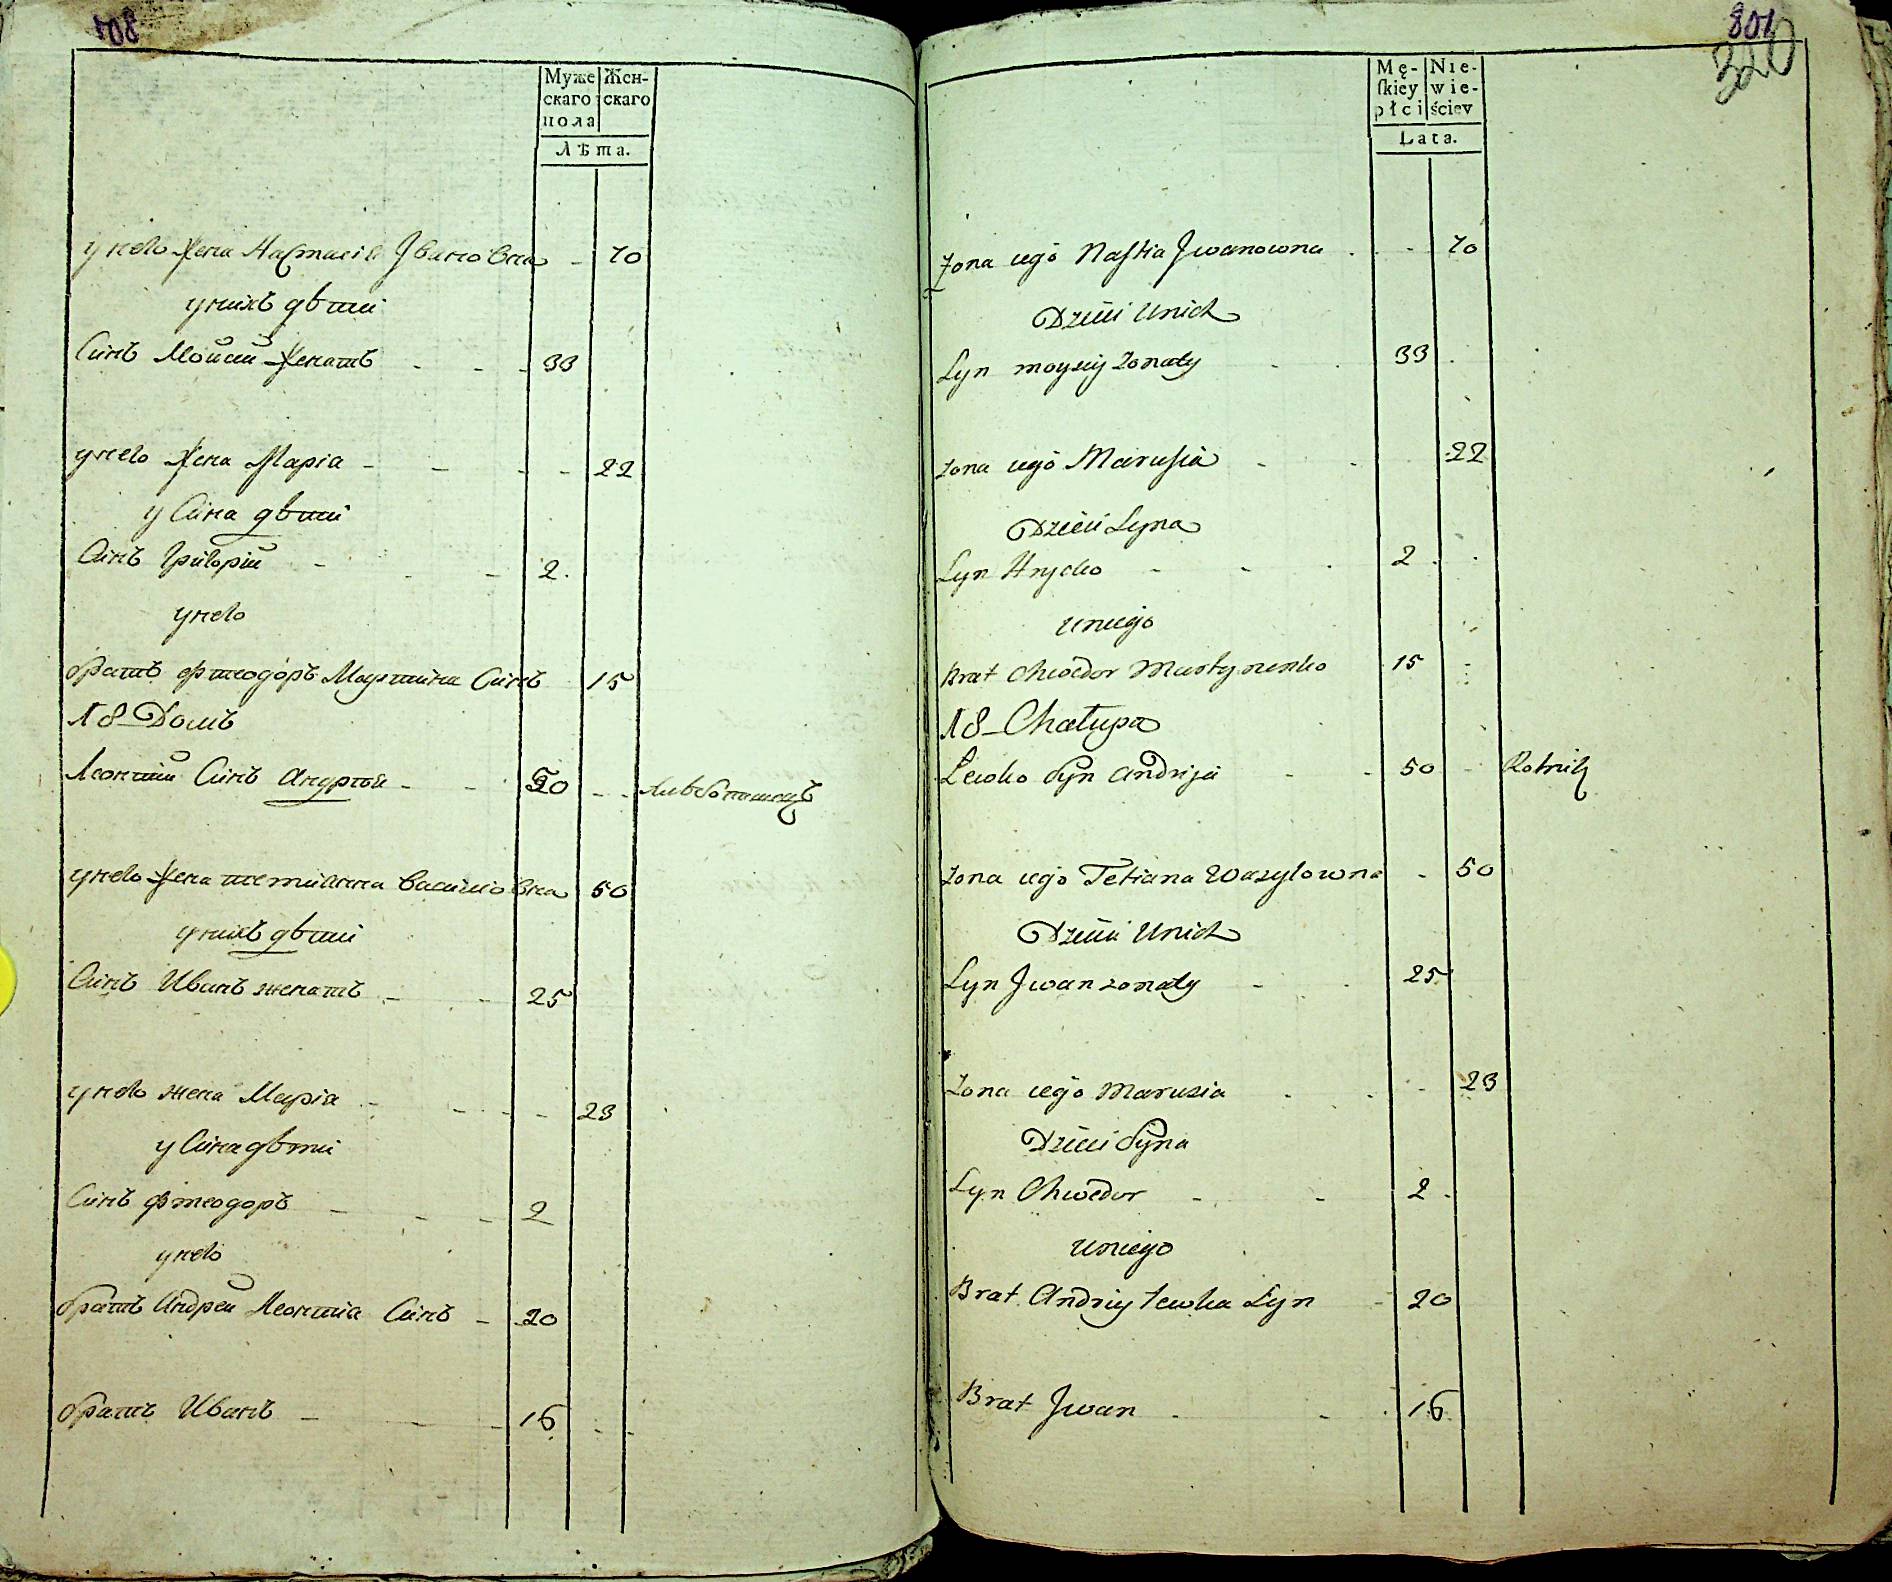 801
Муже Жен-
скаго скаго
пола
Лѣта.
у него жена Настасіа Івановна 70
у нихъ дѣти
Синъ Мойсий женатъ 33
у него жена Маріа 22
у Сина дѣти
Синъ Григорій 2.
у него
братъ Фтеодоръ Мартина Синъ 15
№ 8 Домъ
Леонтий Синъ Андрѣя 50 Хлѣбопашецъ
у него жена Тетианна Василиовна 50
у нихъ дѣти
Синъ Иванъ женатъ 25
у него жена Маріа 23
у Сина дѣти
Синъ Фтеодоръ 2
у него
братъ Андрей Леонтіа Синъ 20
братъ Иванъ 16
801
320
Mę- Nie-
ſkiey wie-
płci ściey
Lata.
Żona iego Naſtia Jwanowna 70
Dzieci Unich
Syn moysiy Zonaty 33
żona iego Maruſia 22
Dzieci Syna
Syn Hrycko 2
uniego
Brat Chwedor Martynenko 15
№ 8 Chałupa
Lewko Syn Andrija 50 Rolnik
żona iego Tetiana Wazylowna 50
Dzieci Unich
Syn Jwan zonaty 25
żona iego Marusia 23
Dzieci Syna
Syn Chwedor 2
uniego
Brat Andriy Lewka Syn 20
Brat Jwan 16